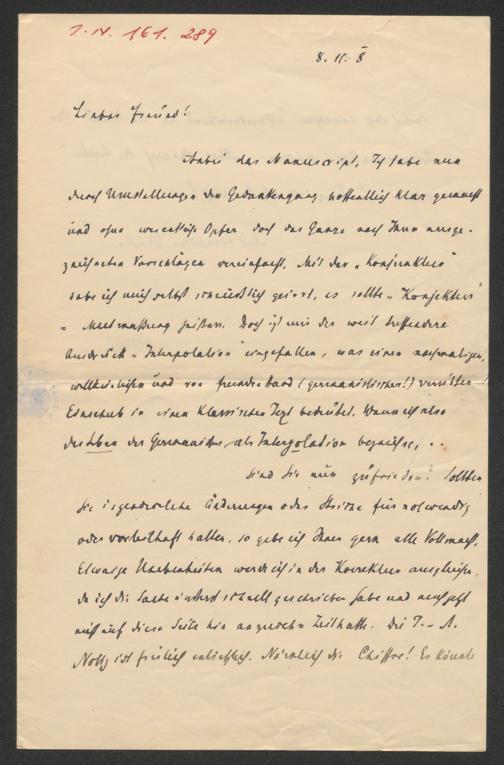 I.N. 161.289
8. II. 8
Lieber Freund!
Anbei das Manuscript. Ich habe nun
durch Umstellungen den Gedankengang hoffentlich klar gemacht
und ohne wesentliche Opfer doch das Ganze nach Ihren ausge-
zeichneten Vorschlägen vereinfacht. Mit der „Konjunktur"
habe ich mich selbst scheußlich geirrt, es sollte „Konjektur"
= Mutmassung heißen. Doch ist mir der weit treffendere
Ausdruck „Interpolation" eingefallen, was einen nachmaligen,
willkürlichen und von fremder Hand (germanistischer!) verübten
Einschub in einen klassischen Text bedeutet. Wenn ich also
das Leben des Germanisten als Interpolation bezeichne, ..
Sind Sie nun zufrieden? Sollten
Sie irgendwelche Änderungen oder Striche für notwendig
oder vorteilhaft halten, so gebe ich Ihnen gern alle Vollmacht.
Etwaige Unebenheiten werde ich in der Korrektur ausgleichen,
da ich die Sache äußerst schnell geschrieben habe und auch jetzt
nicht auf diese Seite hin anzusehn Zeit hatte. Die T.-A.
Notiz ist freilich entsetzlich. Nämlich die Chiffre! Es könnte